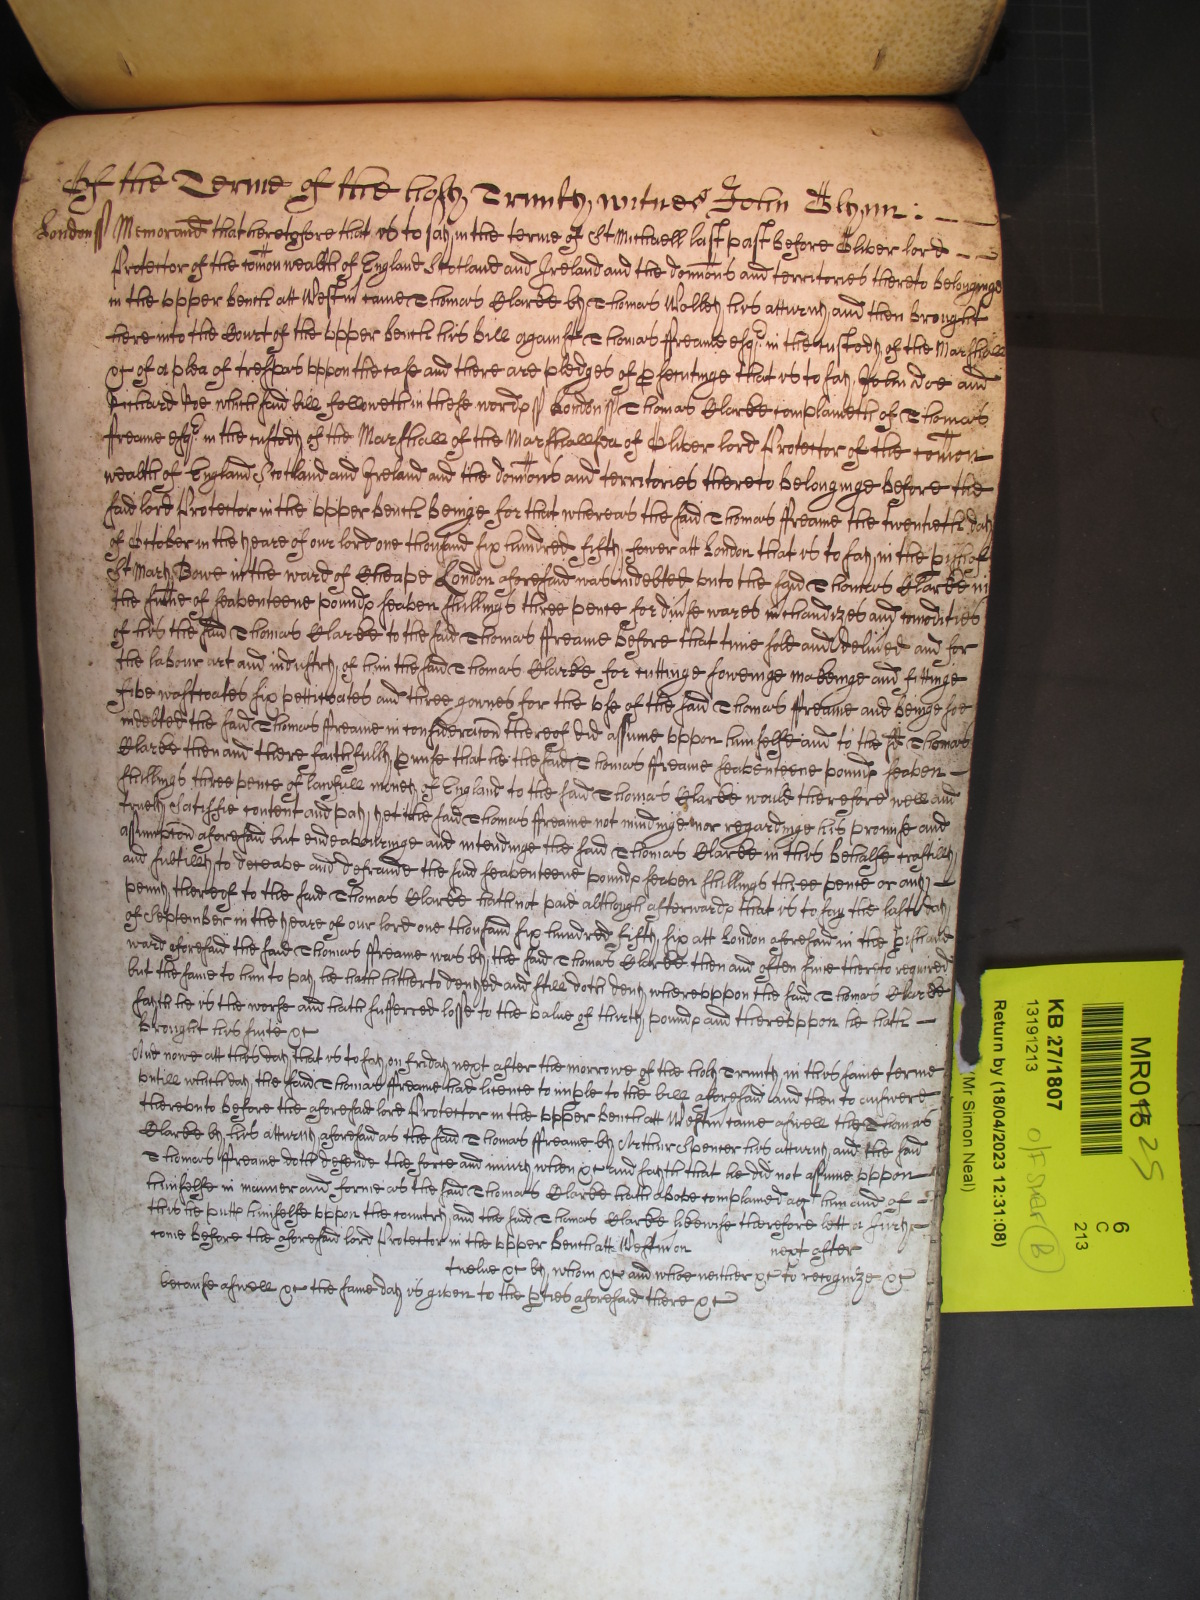 Of the Terme of the holy Trinity witnes John Glynn :
London ss Memorand that heretofore that is to say in the terme of St Michaell last past before Oliver lord
Protector of the comon wealth of England Scotland and Ireland and the domions and territories thereto belonginge
in the upper bench att Westm came Thomas Clarke by Thomas Wolley his atturny and then brought
here into the Court of the upper bench his bill against Thomas ffreame esqr in the custody of the Marshall
&c of a plea of trespas uppon the case and there are pledges of psecutinge that is to say John doe and
Richard Roe which said bill followeth in these words ss London ss Thomas Clarke complaineth of Thomas
ffreame esqr in the custody of the Marshall of the Marshallsea of Oliver lord Protector of the comon
wealth of England Scotland and Ireland and the domions and territories thereto belonginge before the
said lord Protector in the upper bench beinge for that whereas the said Thomas ffreame the twentieth day
of October in the yeare of our lord one thousand six hundred fifty fower att London that is to say in the pish of
St Mary Bowe in the ward of Cheape London aforesaid was indebted unto the said Thomas Clarke in
the sume of seaventeene pounds seaven shillings three pence for divse wares mchandizes and comodities
of his the said Thomas Clarke to the said Thomas ffreame before that time sold and delived and for
the labour art and industry of him the said Thomas Clarke for cuttinge sowinge makeinge and fittinge
five wastcoates six petticoates and three gownes for the use of the said Thomas ffreame and beinge soe
indebted the said Thomas ffreame in consideracon thereof did assume uppon himselfe and to the sd Thomas
Clarke then and there faithfully pmise that he the said Thomas ffreame seaventeene pounds seaven
shillings three pence of lawfull money of England to the said Thomas Clarke would therefore well and
truely satisfie content and pay yet the said Thomas ffreame not mindinge nor regardinge his promise and
assumpcon aforesaid but endeavouringe and intendinge the said Thomas Clarke in this behalfe craftilly
and subtilly to deceave and defraude the said seaventeene pounds seaven shillings three pence or any
penny thereof to the said Thomas Clarke hath not paid although afterwards that is to say the last day
of September in the yeare of our lord one thousand six hundred fifty six att London aforesaid in the pish and
ward aforesaid the said Thomas ffreame was by the said Thomas Clarke then and often since thereto required
but the same to him to pay he hath hitherto denyed and still doth deny whereuppon the said Thomas Clarke
sayth he is the worse and hath suffered losse to the value of thirty pounds and thereuppon he hath
brought his suite &c
And nowe att this day that is to say on Friday next after the morrowe of the holy Trinity in this same terme
untill which day the said Thomas ffreame had licence to imple to the bill aforesaid and then to answere
thereunto before the aforesaid lord Protector in the upper bench att Westm came aswell the Thomas
Clarke by his atturny aforesaid as the said Thomas ffreame by Arthur Spencer his atturny and the said
Thomas ffreame doth defende the force and iniury when &c and sayth that he did not assume uppon
himselfe in manner and forme as the said Thomas Clarke hath above complained agt him and of
this he putts himselfe uppon the country and the said Thomas Clarke likewise therefore lett a Jury
come before the aforesaid lord Protector in the upper bench att Westm on next after
twelve &c by whom &c and whoe neither &c to recognize &c
because aswell &c the same day is given to the pties aforesaid there &c
MR015 25
6
C
213
KB 27/1807
13191213
Return by (18/04/2023 12:31:08)
(Mr Simon Neal)